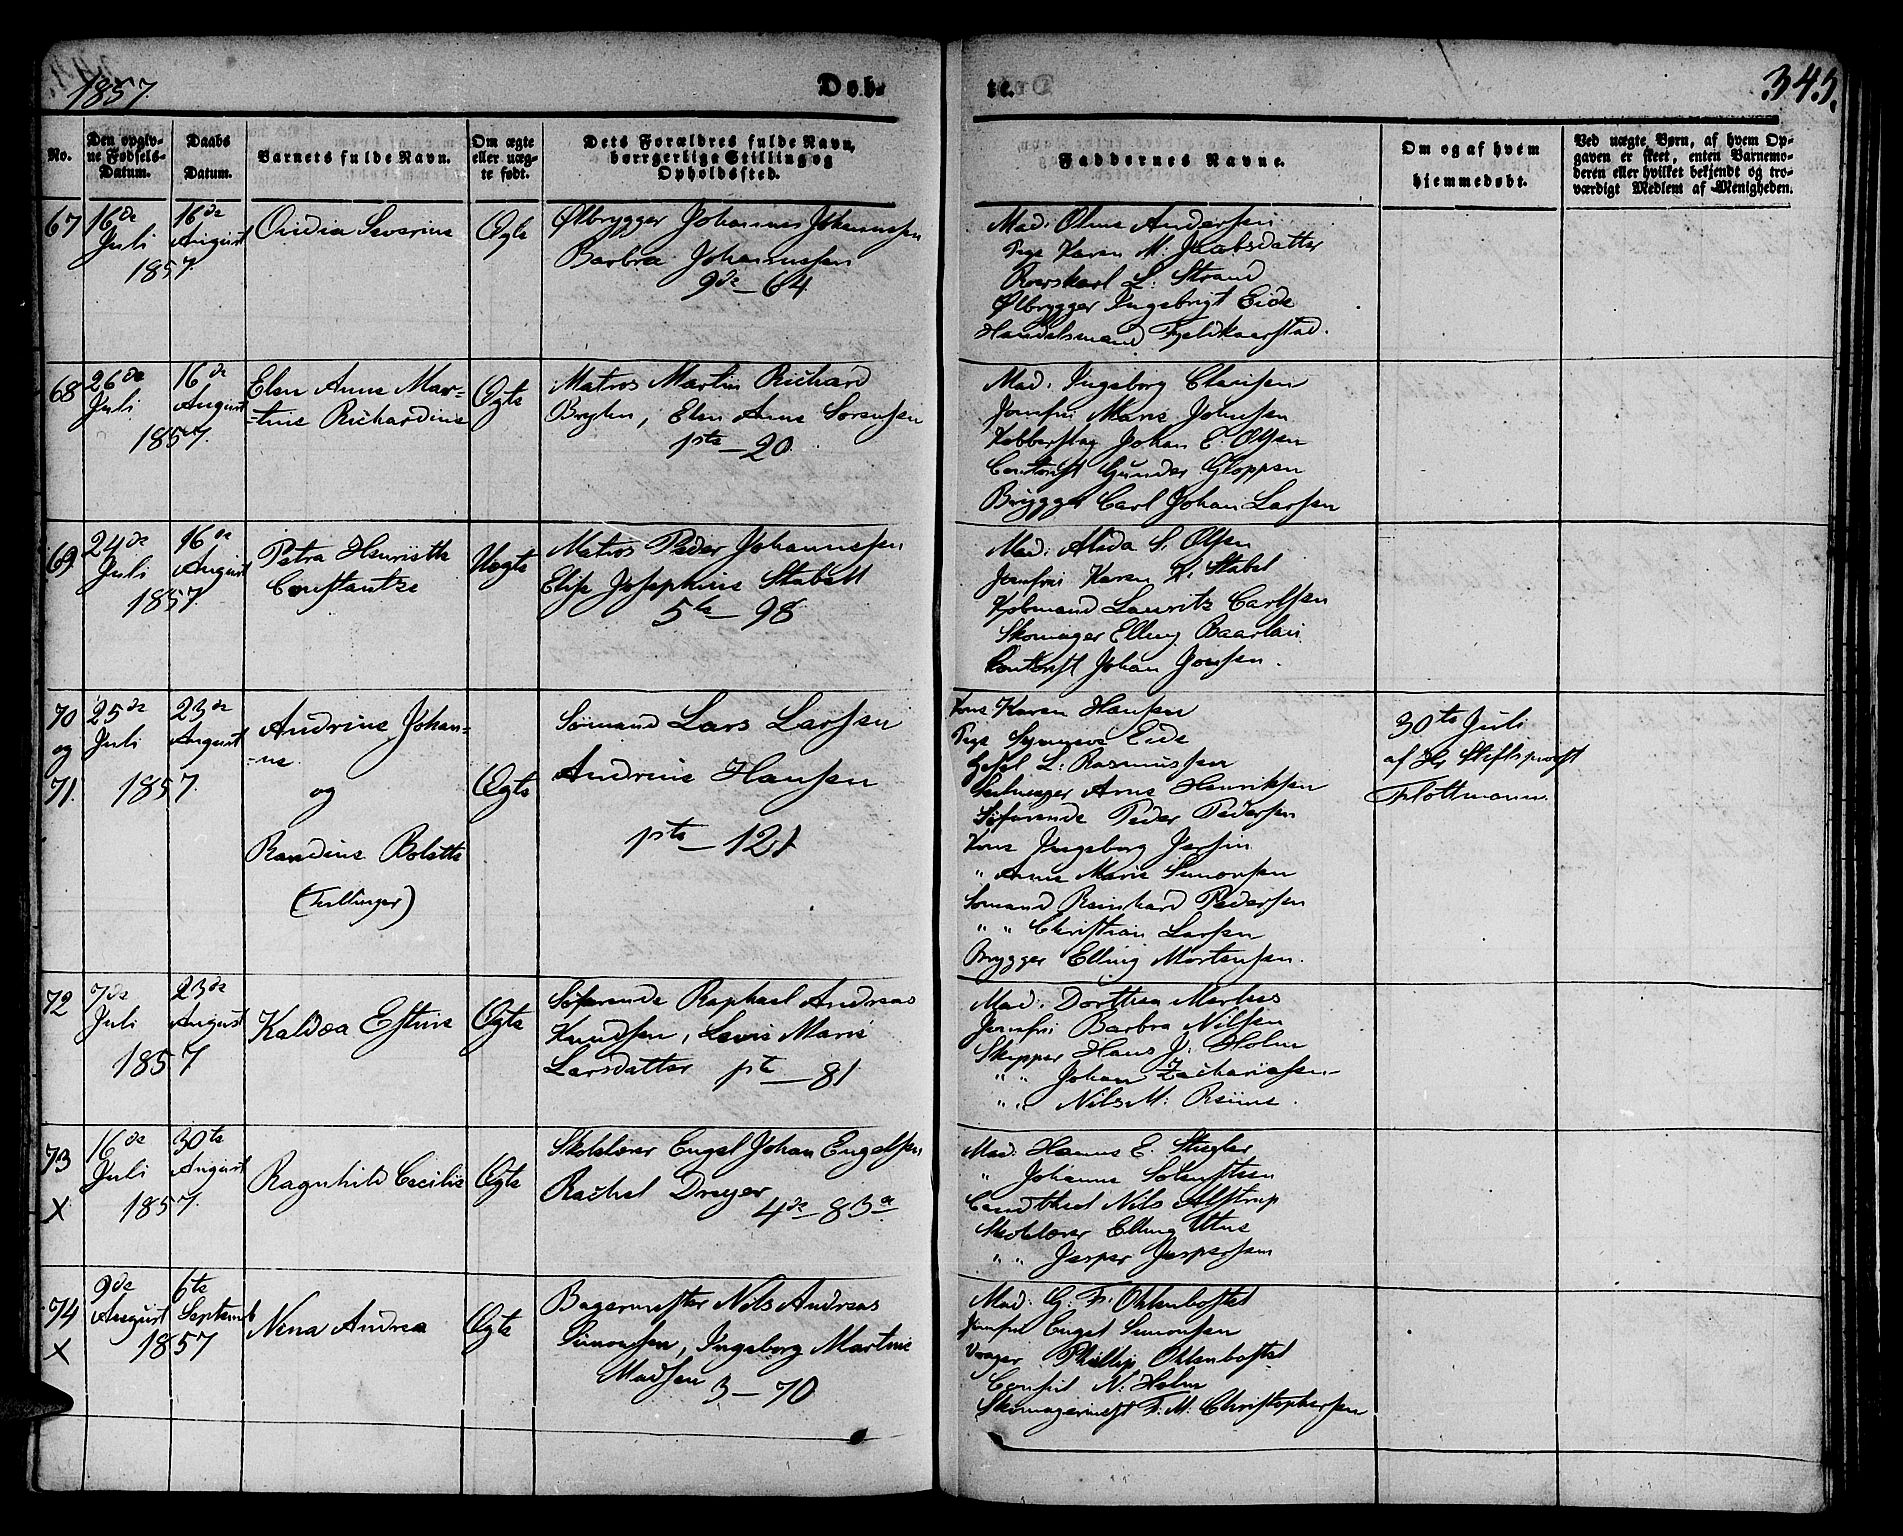 1857.
Døb-
te.
345.
No.
Den opgiv-
ne Fødsels-
Datum.
Daabs
Datum.
Barnets fulde Navn.
Om ægte
eller uæg-
te født.
Dets Forældres fulde Navn,
borgerlige Stilling og
Opholdssted.
Faddernes Navne.
Om og af hvem
hjemmedøbt.
Ved uægte Børn, af hvem Op-
gaven er skeet, enten Barnemo-
deren eller hvilket bekjendt og tro-
værdigt Medlem af Menigheden.
67
16de
Juli
16de
August
1857.
Ovidia Severine
Ægte
Ølbrygger Johannes Johannesen
Barbra Johannesen
9de - 64
Mad: Oline Andersen
Pige Karen M. Jacobsdatter
Roerskarl L: Strand
Ølbrygger Ingebrigt Eide
Handelsmand Fjeldkaarstad.
68
26de
Juli
16de
August
1857.
Elen Anne Mar-
-tine Richardine
Ægte
Matros Martin Richard
Elen Anne Sørensen
1ste - 20.
Mad: Ingeborg Clausen
Jomfru Marie Johnsen
Kobberslag Johan E. Olsen
Contorist Gunder Gloppen
Brygger Carl Johan Larsen
69
24de
Juli
16de
August
1857.
Petra Henriette
Constantse
Uægte
Matros Peder Johannesen
Elise Josephine Stabell
5te - 98
Mad: Alida S. Olsen
Jomfrui Karen K. Stabel
Kjøbmand Lauritz Carlsen
Skomager Elling
Contorist Johan Jonsen.
70
og
71.
25de
Juli
23de
August
1857.
Andrine Johan-
-ne
og
Randine Bolette
(Tvillinger)
Ægte
Sømand Lars Larsen
Andrine Hansen
1ste - 121
Kone Karen Hansen
Pige Synneve Eide
Gesel L: Rasmussen
Seilmager Arne Henriksen
Søfarende Peder Pedersen
Kone Ingeborg Jersin
" Anne Marie Simonsen
Sømand Reinhard Pedersen
" " Christian Larsen
Brygger Elling Mortensen.
30te Juli
af Hr Stiftsprovst
Flottmann.
72
7de
Juli
23de
August
1857
Kaldæa Estine
Ægte
Søfarende Raphael Andreas
Knudsen, Lovis Marie
Larsdatter 1ste - 81
Mad: Dorthea
Jomfrui Barbra Nilsen
Skipper Hans J: Holm
" " Johan Zachariasen
" " Nils M:
73
X
16de
Juli
30te
August
1857.
Ragnhild Cecilie
Ægte
Skolelærer Engel Johan Engelsen
Rachel Dreyer
4de - 83a
Mad: Hanne E. Stegler
" Johanne
Cand theol Nils Alstrup
Skolelærer Elling Utne
" " Jesper Jespersen
74
X
9de
August
6te
Septemb
1857
Nina Andrea
Ægte
Bagermester Nils Andreas
Simonsen, Ingeborg Martine
Madsen 3 - 70
Mad: G. Fr. Ohlenbostel
Jomfru Engel Simonsen
Phillip Ohlenbostel
Consul N: Holm
Skomagermest F. M. Christophersen